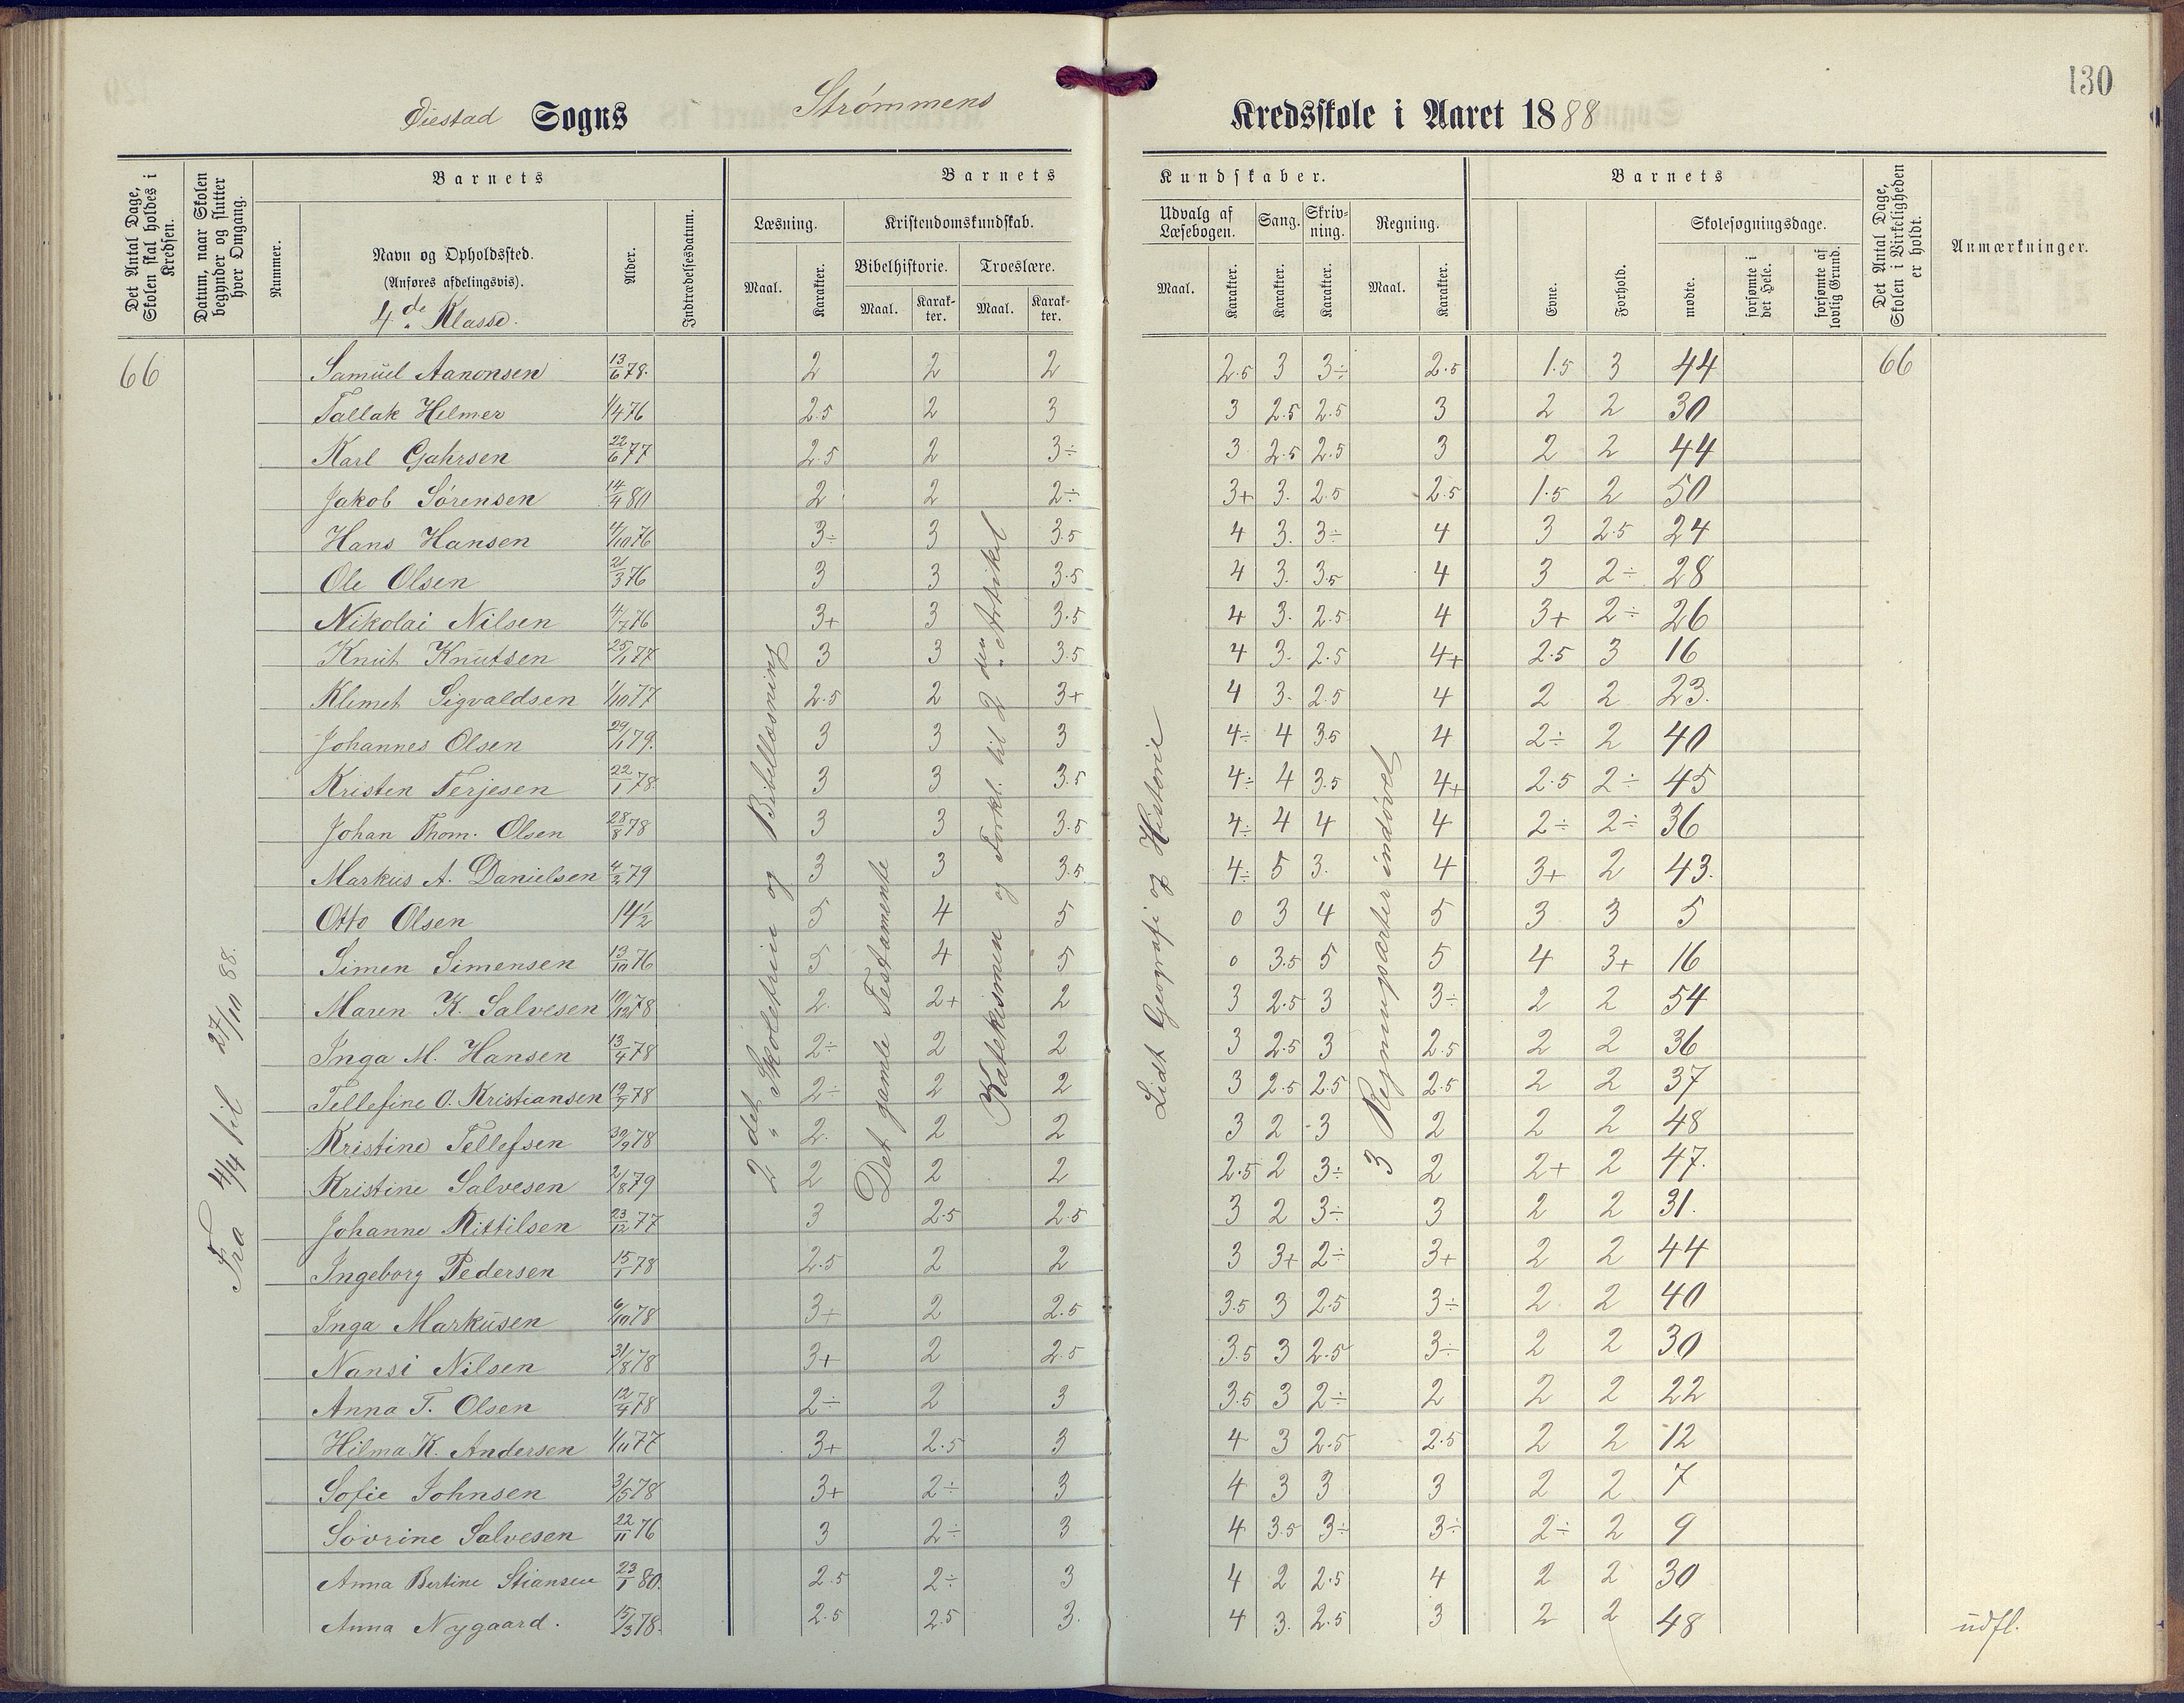 130
Øiestad Sogns Strømmens Kredsskole i Aaret 1888
Det Antal Dage, Skolen skal holdes i Kredsen.
Datum, naar Skolen begynder og slutter hver Omgang.
Barnets
Nummer.
Navn og Opholdssted.
(Anføres afdelingsvis).
4de Klasse.
Alder.
Indtrædelsesdatum.
Barnets Kundskaber.
Læsning. Kristendomskundskab. Udvalg af Læsebogen. Sang. Skrivning. Regning.
Bibelhistorie. Troeslære.
Maal. Karakter. Maal. Karakter. Maal. Karakter. Maal. Karakter. Karakter. Karakter. Maal. Karakter.
Barnets
Evne. Forhold. Skolesøgningsdage.
mødte. forsømte i det Hele. forsømte af lovlig Grund.
Det Antal Dage, Skolen i Virkeligheden er holdt.
Anmærkninger.
66 Samuel Aanonsen 13/6 78. 2 2 2 2.5 3 3÷ 2.5 1.5 3 44 66
Tallak Helmer 1/4 76 2.5 2 3 3 2.5 2.5 3 2 2 30
Karl Gahrsen 22/6 77 2.5 2 3÷ 3 2.5 2.5 3 2 2 44
Jakob Sörensen 14/4 80 2 2 2÷ 3+ 3. 2.5 2.5 1.5 2 50
Hans Hansen 4/10 76 3÷ 3 3.5 4 3. 3÷ 4 3 2.5 24
Ole Olsen 21/3 76 3 3 3.5 4 3. 3.5 4 3 2÷ 28
Nikolai Nilsen 4/7 76 3+ 3 3.5 4 3. 2.5 4 3+ 2÷ 26
Knut Knutsen 25/1 77 3 3 3.5 4 3. 2.5 4+ 2.5 3 16
Klemet Sigvaldsen 1/10 77 2.5 2 3+ 4 3. 2.5 4 2 2 23.
Johannes Olsen 29/1 79. 3 3 3 4÷ 4 3.5 4 2÷ 2 40
Kristen Terjesen 22/1 78. 3 3 3.5 4÷ 4 3.5 4+ 2.5 2÷ 45
Johan Thom. Olsen 28/8 78 3 3 3.5 4÷ 4 4 4 2÷ 2÷ 36
Markus A. Danielsen 4/3 79 3 3 3.5 4÷ 5 3. 4 3+ 2 43.
Otto Olsen 14½ 5 4 5 0 3 4 5 3 3 5
Simen Simensen 13/10 76 5 4 5 0 3.5 5 5 4 3+ 16
Maren K. Salvesen 10/12 78 2. 2+ 2 3 2.5 3 3÷ 2 2 54
Inga M. Hansen 13/4 78 2÷ 2 2 3 2.5 3 2.5 2 2 36
Tellefine O. Kristiansen 19/7 78 2÷ 2 2 3 2.5 2.5 2.5 2 2 37
Kristine Tellefsen 30/9 78 2. 2 2 3 2 3 2 2 2 48
Kristine Salvesen 2/8 79 2 2 2 2.5 2 3÷ 2 2+ 2 47.
Johanne Kittilsen 23/12 77 3 2.5 2.5 3 2 3÷ 3 2 2 31.
Ingeborg Pedersen 15/1 78 2.5 2 2 3 3+ 2÷ 3+ 2 2 44
Inga Markusen 6/10 78 3+ 2 2.5 3.5 3 2.5 3÷ 2 2 40
Nansi Nilsen 31/8 78 3+ 2 2.5 3.5 3 2.5 3÷ 2 2 30
Anna T. Olsen 12/4 78 2÷ 2 3 3.5 3 2÷ 2 2 2 22
Hilma K. Andersen 1/11 77 3+ 2.5 3 4 3 2.5 2.5 2 2 12
Sofie Johnsen 3/5 78 3+ 2÷ 3 4 3 3 3 2 2 7
Sövrine Salvesen 22/11 76 3 2÷ 3 4 3.5 3÷ 3÷ 2÷ 2 9
Anna Bertine Stiansen 23/1 80. 2.5 2÷ 3 4 2 2.5 4 2 2 30
Anna Nygaard. 15/3 78. 2.5 2.5 3. 4 3. 2.5 3 2 2 48 udfl.
Fra 4/4 til 27/10 88.
2det Skoletrin og Bibellæsning
Det gamle Testamente
Katekismen og Forkl. til 2den Artikel
Lidt Geografi og Historie
3 Regningsarter indøvet